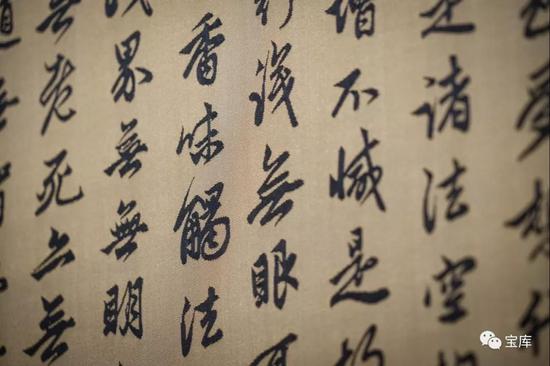 夢想
是諸法空
增不減是
行識無眼
香味觸法
界無無明
無老死亦無
宝库